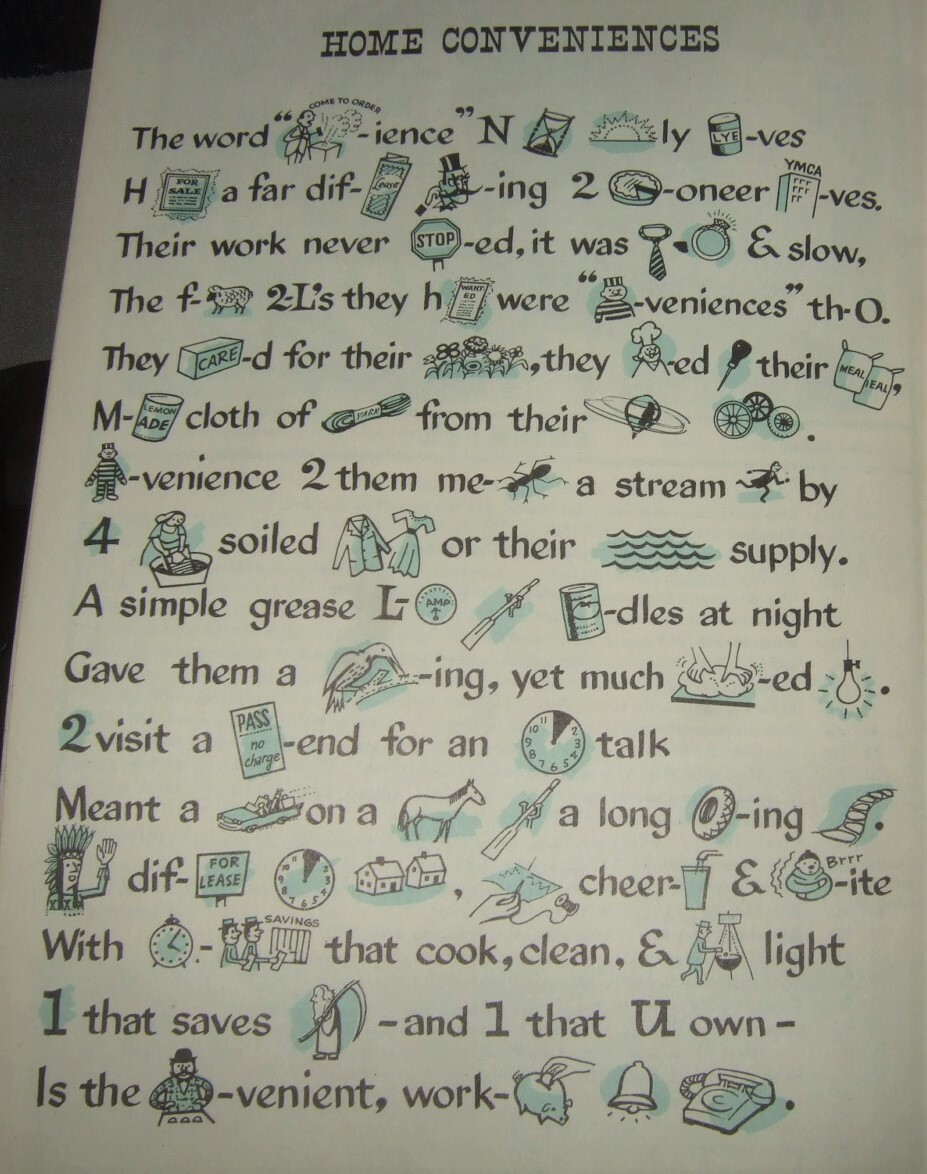 HOME CONVENIENCES
COME TO ORDER
The word " -ience" N ly LYE -ves
H FOR SALE a far dif- -ing 2 -oneer YMCA -ves.
Their work never STOP -ed, it was & slow,
The f- 2-L's they h WANTED were " -veniences" th-O.
They CARE -d for their , they -ed their MEAL MEAL,
M- LEMON ADE cloth of YARN from their .
-venience 2 them me- a stream by
4 soiled or their supply.
A simple grease L- AMP -dles at night
Gave them a -ing, yet much -ed .
2 visit a PASS no charge -end for an 11 10 9 8 7 6 5 4 3 2 talk
Meant a on a a long -ing .
dif- FOR LEASE , cheer- & Brrr -ite
With .- SAVINGS that cook, clean, & light
1 that saves -and 1 that U own -
Is the -venient, work- .